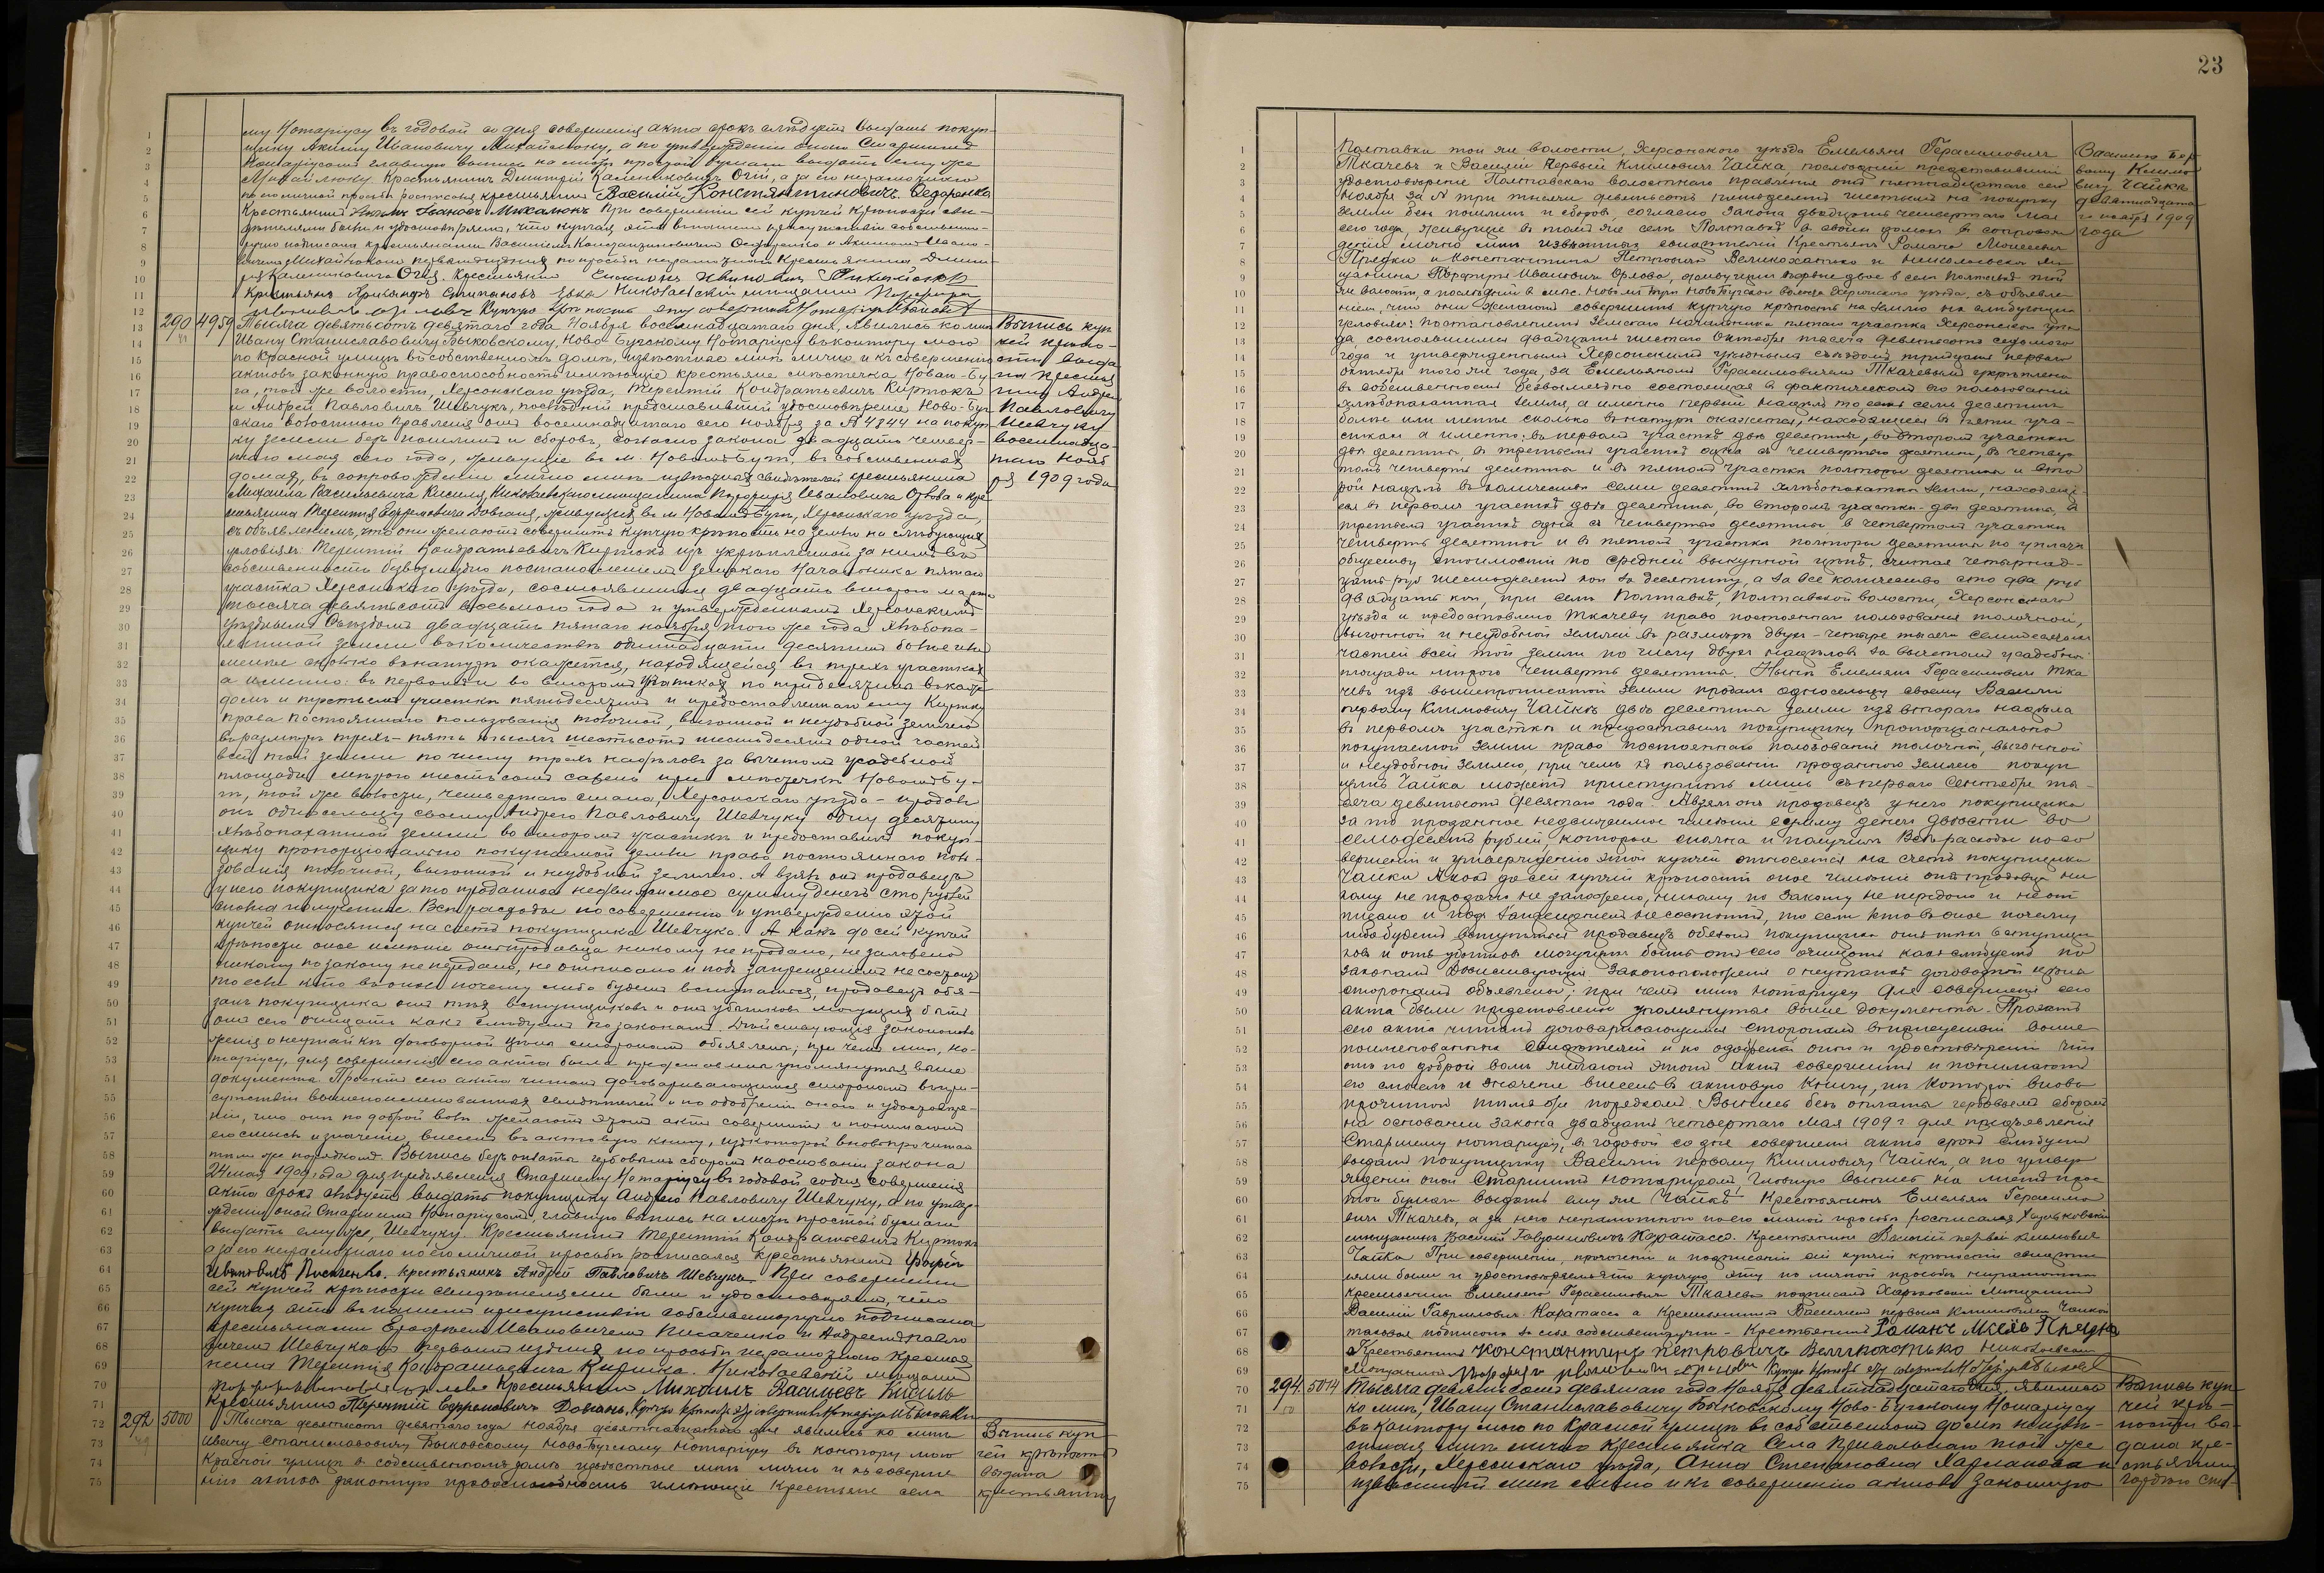 му Нотаріусу въ годовой со дня совершенія акта срокъ слѣдуетъ выдать покуп-
щику Акиму Ивановичу Михайлюку, а по утвержденіи оной Старшимъ
Нотаріусомъ главную выпись на листѣ простой бумаги выдать ему же
Михайлюку. Крестьянинъ Дмитрій Каленниковичъ Огій, а за его неграмотнаго
по его личной просьбѣ росписался крестьянинъ Василій Константиновичъ Федоренко
Крестьянинъ Якимъ Івановъ Михалюкъ При совершеніи сей купчей крѣпости сви-
дѣтелями были и удостовѣряемъ, что купчая эта въ нашемъ присутствіи собственно-
ручно подписана крестьянами Василіемъ Константиновичемъ Федоренко и Акимомъ Ивано-
вичемъ Михайлюкомъ первымъ изъ нихъ по просьбѣ неграмотнаго крестьянина Дмит-
рія Каленниковича Огія. Крестьянинъ
Крестьянъ Степановъ Николаевскій мѣщанинъ Порфирій
Ивановичъ Орловъ Купчую крѣпость эту совершилъ Нотаріусъ Быковскій
290 4959 Тысяча девятьсотъ девятаго года Ноября восемнадцатаго дня, явились ко мнѣ Выпись куп-
Ивану Станиславовичу Быковскому, Ново-Бугскому Нотаріусу въ контору мою чей крѣпо-
по Красной улицѣ въ собственномъ домѣ, извѣстные мнѣ лично и къ совершенію сти выда-
актовъ законную правоспособность имѣющіе крестьяне мѣстечка Новаго-Бу- на кресть-
га, той же волости, Херсонскаго уѣзда, Терентій Кондратьевичъ Киртокъ нину Андрею
и Андрей Павловичъ Шевчукъ, послѣдній представившій удостовѣреніе Ново-Буг- Павловичу
скаго волостного правленія отъ восемнадцатаго сего ноября за № 4844 на покуп- Шевчуку
ку земли безъ пошлинъ и сборовъ, согласно закона двадцать четвер- восемнадца-
таго мая сего года, живущіе въ м. Новомъ-Бугѣ, въ собственныхъ таго нояб-
домахъ, въ сопровожденіи лично мнѣ извѣстныхъ свидѣтелей крестьянина ря 1909 года
Михаила Васильевича Кисиля, Николаевскаго мѣщанина Порфирія Ивановича Орлова и кре-
стьянина Терентія Ефремовича Довганя, живущихъ въ м. Новомъ-Бугѣ, Херсонскаго уѣзда,
съ объявленіемъ, что они желаютъ совершить купчую крѣпость на землю на слѣдующихъ
условіяхъ: Терентій Кондратьевичъ Киртокъ изъ укрѣпленной за нимъ въ
собственность безвозмездно постановленіемъ Земскаго Начальника пятаго
участка Херсонскаго уѣзда, состоявшимся двадцать второго марта
тысяча девятьсотъ восьмого года и утвержденнымъ Херсонскимъ
Уѣзднымъ Съѣздомъ двадцать пятаго ноября того же года хлѣбопа-
хатной земли въ количествѣ одиннадцати десятинъ болѣе или
менѣе сколько въ натурѣ окажется, находящейся въ трехъ участкахъ
а именно: въ первомъ и во второмъ участкахъ по три десятины въ каж-
домъ и третьемъ участкѣ пять десятинъ и предоставленнаго ему Киртоку
права постояннаго пользованія толочной, выгонной и неудобной землей
въ размѣрѣ трехъ-пять тысячъ шестьсотъ шестьдесятъ одной частей
всей той земли по числу трехъ надѣловъ за вычетомъ усадебной
площади мѣрою шестьсотъ сажень при мѣстечкѣ Новомъ-Бу-
гѣ, той же волости, четвертаго стана, Херсонскаго уѣзда - продалъ
онъ односельцу своему Андрею Павловичу Шевчуку одну десятину
хлѣбопахатной земли во второмъ участкѣ и предоставилъ покуп-
щику пропорціонально покупаемой земли право постояннаго поль-
зованія толочной, выгонной и неудобной землею. А взялъ онъ продавецъ
у него покупщика за то проданное недвижимое сумму денегъ сто рублей
сполна полученные. Всѣ расходы по совершенію и утвержденію этой
купчей относятся на счетъ покупщика Шевчука. А какъ до сей купчей
крѣпости оное имѣніе отъ продавца никому не продано, не заложено
никому по закону не передано, не отписано и подъ запрещеніемъ не состоитъ
то если кто въ оное почему либо будетъ вступаться, продавецъ обя-
занъ покупщика отъ тѣхъ вступщиковъ и отъ убытковъ могущихъ быть
отъ сего очищать какъ слѣдуетъ по законамъ. Дѣйствующія законополо-
женія о неутайкѣ договорной цѣны сторонамъ объявлены; при чемъ мнѣ, но-
таріусу, для совершенія сего акта были представлены упомянутые выше
документы. Проектъ сего акта читанъ договаривающимся сторонамъ въ при-
сутствіи вышепоименованныхъ свидѣтелей и по одобреніи онаго и удостовѣре-
ніи, что они по доброй волѣ желаютъ этотъ актъ совершить и понимаютъ
его смыслъ и значеніе, внесенъ въ актовую книгу, изъ которой вновь прочитанъ
тѣмъ же порядкомъ. Выпись безъ оплаты гербовымъ сборомъ на основаніи закона
24 мая 1909 года для предъявленія Старшему Нотаріусу въ годовой со дня совершенія
акта срокъ слѣдуетъ выдать покупщику Андрею Павловичу Шевчуку, а по утвер-
жденіи оной Старшимъ Нотаріусомъ, главную выпись на листѣ простой бумаги
выдать ему же, Шевчуку. Крестьянинъ Терентій Кондратьевичъ Киртокъ
а за его неграмотнаго по его личной просьбѣ росписался крестьянинъ
Ивановичъ Писаченко. Крестьянинъ Андрей Павловичъ Шевчукъ При совершеніи
сей купчей крѣпости свидѣтелями были и удостовѣряемъ, что
купчая эта въ нашемъ присутствіи собственноручно подписана
крестьянами Ивановичемъ Писаченко и Андреемъ Павло-
вичемъ Шевчукомъ первымъ изъ нихъ по просьбѣ неграмотнаго крестья-
нина Терентія Кондратьевича Киртока. Николаевскій мѣщанинъ
Порфирій Ивановичъ Орловъ Крестьянинъ Михаилъ Васильевъ Кисиль
Крестьянинъ Терентій Ефремовичъ Довгань, Купчую крѣпость эту совершилъ Нотаріусъ Быковскій
292 5000 Тысяча девятьсотъ девятаго года Ноября девятнадцатаго дня явились ко мнѣ Выпись куп-
Ивану Станиславовичу Быковскому Ново-Бугскому Нотаріусу въ контору мою чей крѣпости
Красной улицѣ въ собственномъ домѣ извѣстные мнѣ лично и къ соверше- выдана
нію актовъ законную правоспособность имѣющіе крестьяне села крестьянину
23
Полтавки той же волости, Херсонскаго уѣзда Емельянъ Герасимовичъ Василію Пер-
Ткачевъ и Василій Первый Климовичъ Чайка, послѣдній представившій вому Климо-
удостовѣреніе Полтавскаго волостного правленія отъ пятнадцатаго сего вичу Чайка
Ноября за № три тысячи девятьсотъ пятьдесятъ шестымъ на покупку девятнадцата-
земли безъ пошлинъ и сборовъ, согласно закона двадцать четвертаго Мая го ноября 1909
сего года, живущіе въ томъ же селѣ Полтавкѣ въ своихъ домахъ въ сопровож- года
деніи лично мнѣ извѣстныхъ свидѣтелей Крестьянъ Романа Моисеевича
Предки и Константина Петровича Великохатько и Николаевскаго мѣ-
щанина Порфирія Ивановича Орлова, живущихъ первые двое въ селѣ Полтавкѣ той
же волости, а послѣдній въ мѣс. Новомъ Бугѣ Ново-Бугской волости Херсонскаго уѣзда, съ объявле-
ніемъ, что они желаютъ совершить купчую крѣпость на землю на слѣдующихъ
условіяхъ: Постановленіемъ Земскаго Начальника пятаго участка Херсонскаго уѣз-
да, состоявшимся двадцать шестаго Октября тысяча девятьсотъ седьмого
года и утвержденнымъ Херсонскимъ уѣзднымъ съѣздомъ тридцать перваго
октября того же года, за Емельяномъ Герасимовичемъ Ткачевымъ укрѣплена
въ собственность безвозмездно состоящая въ фактическомъ его пользованіи
хлѣбопахатная земля, а именно первый надѣлъ семь десятинъ
болѣе или менѣе сколько въ натурѣ окажется, находящаяся въ пяти уча-
сткахъ а именно: въ первомъ участкѣ двѣ десятины, во второмъ участкѣ
двѣ десятины, въ третьемъ участкѣ одна съ четвертью десятина, въ четвер-
томъ четверть десятины и въ пятомъ участкѣ полторы десятины и вто-
рой надѣлъ въ количествѣ семи десятинъ хлѣбопахатной земли, находящ-
ейся въ первомъ участкѣ двѣ десятины, во второмъ участкѣ двѣ десятины, въ
третьемъ участкѣ одна съ четвертью десятины въ четвертомъ участкѣ
четверть десятины и въ пятомъ участкѣ полторы десятины по уплатѣ
обществу стоимости по средней выкупной цѣнѣ, считая четырнад-
цать руб шестьдесятъ коп за десятину, а за все количество сто два руб
двадцать коп, при селѣ Полтавкѣ, Полтавской волости, Херсонскаго
уѣзда и предоставлено Ткачеву право постояннаго пользованія толочной,
выгонной и неудобной землей въ размѣрѣ двухъ-четыре тысячи
частей всей той земли по числу двухъ надѣловъ за вычетомъ усадебной
площади мѣрою четверть десятины. Нынѣ Емельянъ Герасимовичъ Тка-
чевъ изъ вышепрописанной земли продалъ односельцу своему Василію
первому Климовичу Чайкѣ двѣ десятины земли изъ второго надѣла
въ первомъ участкѣ и предоставилъ покупщику пропорціонально
покупаемой земли право постояннаго пользованія толочной, выгонной
и неудобной землею, при чемъ къ пользованію проданною землею покуп-
щикъ Чайка можетъ приступить лишь съ перваго Сентября ты-
сяча девятьсотъ девятаго года. А взялъ онъ продавецъ у него покупщика
за то проданное недвижимое имѣніе сумму денегъ двѣсти во-
семьдесятъ рублей, которые сполна и получилъ. Всѣ расходы по со-
вершенію и утвержденію этой купчей относятся на счетъ покупщика
Чайки А какъ до сей купчей крѣпости оное имѣніе отъ продавца ни
кому не продано не заложено, никому по закону не передано и не от-
писано и подъ запрещеніемъ не состоитъ, то если кто въ оное почему
либо будетъ вступаться продавецъ обязанъ покупщика отъ тѣхъ вступщи-
ковъ и отъ убытковъ могущихъ быть отъ сего очищать какъ слѣдуетъ по
законамъ Дѣйствующія законоположенія о неутайкѣ договорной цѣны
сторонамъ объявлены; при чемъ мнѣ нотаріусу для совершенія сего
акта были представлены упомянутые выше документы. Проектъ
сего акта читанъ договаривающимся сторонамъ въ присутствіи выше
поименованныхъ свидѣтелей и по одобреніи онаго и удостовѣреніи что
они по доброй волѣ желаютъ этотъ актъ совершить и понимаютъ
его смыслъ и значеніе внесенъ въ актовую книгу, изъ которой вновь
прочитанъ тѣмъ же порядкомъ. Выпись безъ оплаты гербовымъ сборомъ
на основаніи закона двадцать четвертаго Мая 1909 г для предъявленія
Старшему нотаріусу, въ годовой со дня совершенія акта срокъ слѣдуетъ
выдать покупщику Василію первому Климовичу Чайкѣ, а по утвер-
жденіи оной Старшимъ нотаріусомъ главную выпись на листѣ прос-
той бумаги выдать ему же Чайкѣ Крестьянинъ Емельянъ Герасимо-
вичъ Ткачевъ, а за него неграмотного по его личной просьбѣ росписался Харьковскій
мѣщанинъ Василій Гавриловичъ Каратась. Крестьянинъ Василій первый Климовичъ
Чайка При совершеніи, прочтеніи и подписаніи сей купчей крѣпости свидѣте-
лями были и удостовѣряемъ что купчую эту по личной просьбѣ неграмотнаго
крестьянина Емельяна Герасимовича Ткачева подписалъ Харьковскій Мѣщанинъ
Василій Гавриловичъ Каратась а Крестьянинъ Василій первый Климовичъ Чайка
таковую подписалъ за себя собственноручно - Крестьянинъ Романъ Предка
Крестьянинъ Константинъ Петровичъ Великохатько Николаевскій
мѣщанинъ Порфирій Ивановичъ Орловъ Купчую крѣпость эту совершилъ Нотаріусъ Быковскій
294. 5014 Тысяча девятьсотъ девятаго года Ноября девятнадцатаго дня, явились Выпись куп-
ко мнѣ, Ивану Станиславовичу Быковскому Ново-Бугскому Нотаріусу чей крѣ-
въ контору мою по Красной улицѣ въ собственномъ домѣ неизвѣ- пости вы-
стная мнѣ лично крестьянка Села Привольнаго той же дана кре-
волости, Херсонскаго уѣзда, Анна Степановна Харланова и стьянину
извѣстный мнѣ лично и къ совершенію актовъ законную